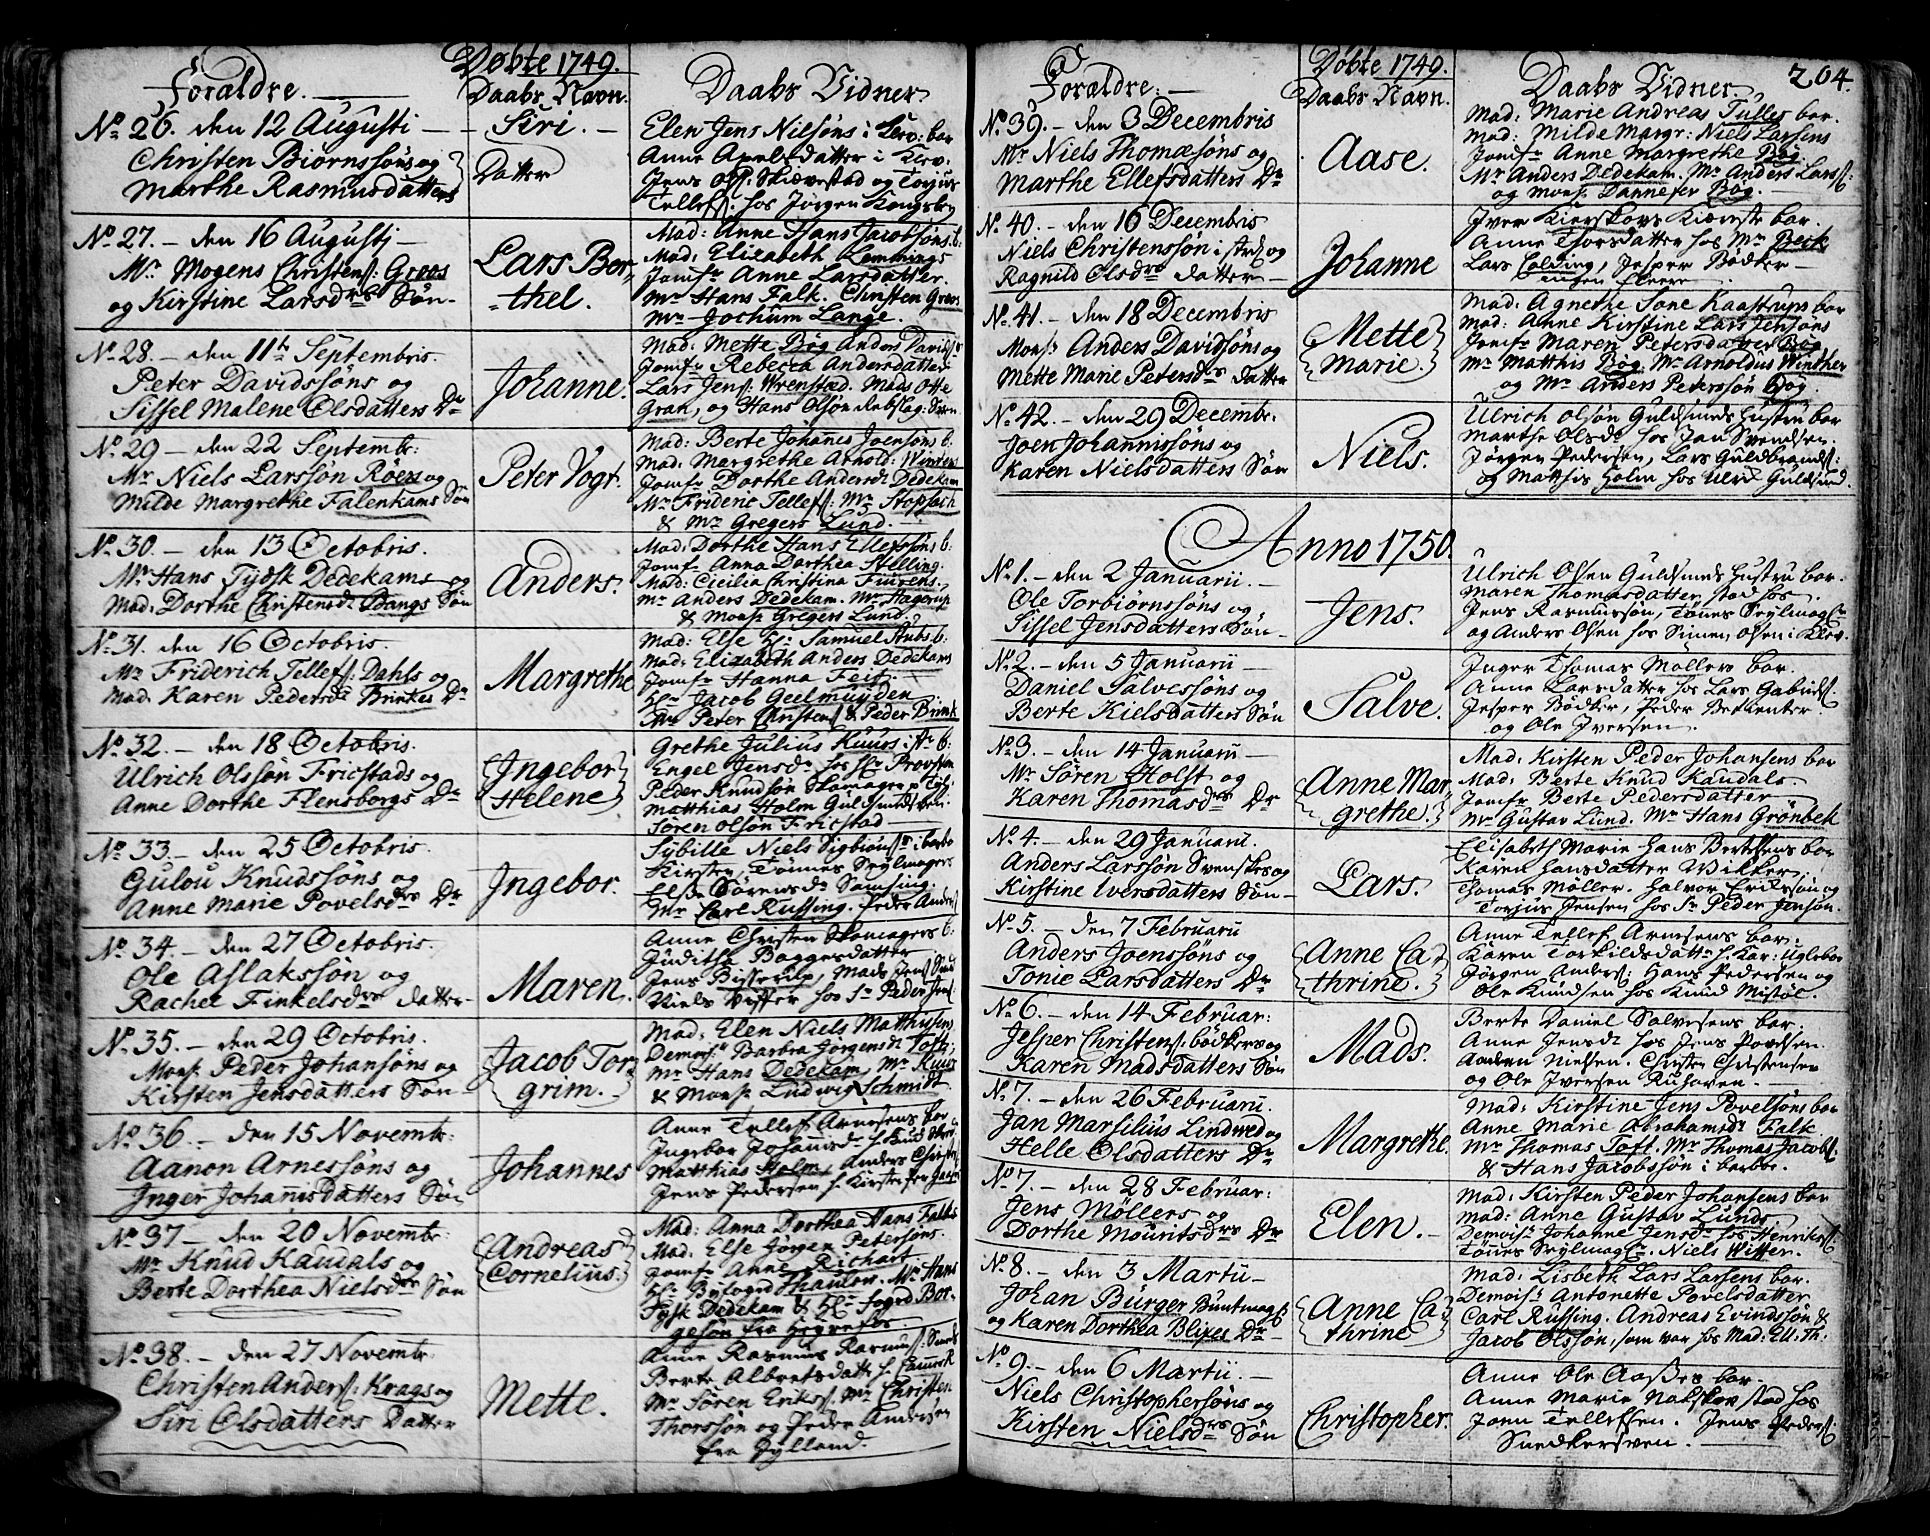 Døbte 1749.
Forældre. Daabs Navn. Daabs Vidner
No 26. den 12 Augusti
Christen Biornssøns og
Marthe Rasmusdatters
Siri.
Datter
Elen Jens Nielsøns i bar
Anne Apelsdatter i
Jens Skiævestad og Torjus
Tellefs: hos Jørgen Kongsberg
No 27. den 16 Augustj
Mr. Mogens Christens: Groos
og Kirstine Larsdrs Søn
Lars Bor-
thel.
Mad: Anne Hans Jacobsøns b:
Mad: Elizabeth Lemmings
Jomfr Anne Larsdatter.
Mr Hans Falk. Christen Groos
Mr Jochum Lange.
No 28. den 11te Septembris.
Peter Davidssøns og
Sissel Malene Olsdatters Dr
Johanne.
Mad: Mette Bøg Anders Davids
Jomfr Rebecca Andersdatter
Lars Jens: Wrenstæd. Mads Otte
Gran, og Hans Olsøn
No 29 den 22 Septembr:
Mr Niels Larssøn Roers og
Milde Margrethe Falenkams Søn
Peter Vogt.
Mad: Berte Johannes Joensøns b:
Mad: Margrethe Arnold: Winters
Jomfr Dorthe Andersdr Dedekam
Mr Frideric Tellefs: Mr Stopfach
& Mr Gregers Lund.
No 30. den 13 Octobris.
Mr Hans Tydsk Dedekams og
Mad: Dorthe Christensdr Bangs Søn
Anders.
Mad: Dorthe Hans Ellefssøns b:
Jomfr Anna Dorthea Stelling.
Mad: Cicilia Christina Fuirens.
Mr Anders Dedekam. Mr Hagerup
& Mons: Gregers Lund.
No 31. den 16 Octobris.
Mr Friderich Tellefs: Dahls og
Mad: Karen Pedersdr Brinkes Dr
Margrethe
Mad: Else Hr Samuel Stubs b:
Mad: Elizabeth Anders Dedekams
Jomfr Hanna Feit.
Hr Jacob Geelmuyden
Mr Peter Christens & Peder Brink
No 32. den 18 Octobris.
Ulrich Olssøn Fricstads og
Anne Dorthe Flensborgs Dr
Ingebor
Helene
Grethe Julius Kuurs b:
Engel Jensdr hos Hr Provsten
Peder Knudsøn Skomager
Matthias Holm Guldsmed
Søren Olsøn Fricstad
No 33. den 25 Octobris.
Gulou Knudssøns og
Anne Marie Povelsdrs Dr
Ingebor.
Sybille Niels Sigbiøns
Kirsten Tønnes Seylmagers
Else Sørensdr Samsing.
Mr Carl Russing. Peder Anders
No 34. den 27 Octobris.
Ole Aslakssøn og
Rachel Finkelsdrs datter
Maren.
Anne Christen Skomagers b:
Juditha Baggesdatter
Jens Bisserup, Mads Jens
Niels Viffer hos Sr Peder Jens:
No 35. den 29 Octobris.
Mons: Peder Johansøns og
Kirsten Jensdatters Søn
Jacob Tor-
grim.
Mad: Elen Niels Matthisens
Demois: Barbra Jørgensdr Toft:
Mr Hans Dedekam. Mr Kuur
& Mons: Ludvig Schmidt
No 36. den 15 Novembr:
Aanon Arnessøns og
Inger Johannisdatters Søn
Johannes
Anne Tellef Arnesens bar
Ingebor Johannisdr
Matthias Holm. Anders Christens
Jens Pedersen
No 37. den 20 Novembr:
Mr Knud Kaudals og
Berte Dorthea Nielsdrs Søn
Andreas
Cornelius.
Mad: Anna Dorthea Hans Falks
Mad: Else Jørgen Petersøns.
Jomfr Anne Richart
Hr Byfogd Thaulow. Mr Hans
Tydsk Dedekam & Hr Fogd Bor-
gesøn fra
No 38. den 27 Novembr.
Christen Anders: Krags og
Siri Olsdatters Datter
Mette.
Anne Rasmus Rasmus:
Berte Albretsdatter
Mr Søren Eriks: Mr Christen
Thorssøn og Peder Andersen
fra Jylland.
Døbte 1749.
204.
Forældre: Daabs Navn. Daabs Vidner
No 39. den 3 Decembris
Mr Niels Thomæsøns og
Marthe Ellefsdatters Dr
Aase.
Mad: Marie Andreas Tulles bar.
Mad: Milde Margr: Niels Larsens
Jomfr Anne Margrethe Bøg
Mr Anders Dedekam. Mr Anders Lars:
og Mons: Dannefer Bøg.
No 40. den 16 Decembris
Niels Christenssøn og
Ragnild Olsdrs datter
Johanne
Iver Kierskovs Kiæreste bar.
Anne Thorsdatter hos Mr Beck
Lars Colding, Jesper Bødker
ingen fleere
No 41. den 18 Decembris
Mons: Anders Davidsøns og
Mette Marie Petersdrs datter
Mette
Marie.
Mad: Agnethe Sone Kaastrups bar
Mad: Anne Kirstine Lars Jensøns
Jomfr Maren Petersdatter Bøg
Mr Matthis Bøg. Mr Arnoldus Winther
og Mr Anders Peterssøn Bøg.
No 42. den 29 Decembr:
Joen Johannissøns og
Karen Nielsdatters Søn
Niels.
Ulrich Olsøn Guldsmeds Hustru bar
Marthe Olsdr hos Jan Svendsen.
Jørgen Pedersen, Lars Guldbrands:
og Matthis Holm hos Ulrich Guldsmed.
Anno 1750.
No 1. den 2 Januarii.
Ole Torbiørnssøns og
Sissel Jensdatters Søn
Jens.
Ulrich Olsen Guldsmeds Hustru bar.
Maren Thomasdatter stod hos
Jens Rasmussøn, Tønes Seylmager
og Anders Olsen hos Simen Olsen i Kløv.
No 2. den 5 Januarii
Daniel Salvessøns og
Berte Kielsdatters Søn
Salve.
Inger Thomas Møllers bar.
Anne Larsdatter hos Lars Gabriels:
Jesper Bødker, Peder Betienter
og Ole Iversen.
No 3. den 14 Januarii
Mr Søren Holst og
Karen Thomasdrs Dr
Anne Mar-
grethe.
Mad: Kirsten Peder Johansens bar
Mad: Berte Knud Kaudals
Jomfr Berte Pedersdatter
Mr Gustav Lund. Mr Hans Grönbek
No 4. den 29 Januarii.
Anders Larssøn Svenskes og
Kirstine Iversdatters Søn
Lars.
Elisabeth Marie Hans Bertelsens bar
Karen Hansdatter Wikker,
Thomas Møller. Halvor Erikssøn og
Torjus Jensen hos Sr Peder Jensøn.
No 5. Den 7 Februarii
Anders Joenssøns og
Tonie Larsdatters Dr
Anne Ca-
thrine.
Anne Tellef Arnesens bar.
Karen Torkildsdatter h. Kar: Uglebor
Jørgen Anders: Hans Pedersen og
Ole Knudsen hos Knud Mistøl.
No 6. den 14 Februar:
Jesper Christens: bødkers og
Karen Madsdatters Søn
Mads.
Berte Daniel Salvesens bar.
Anne Jensdr hos Jens Povelsen.
Anders Nielsen. Christen Christensen
og Ole Iversen Ruhaven.
No 7. den 26 Februarii.
Jan Marsilius Lindwed og
Helle Olsdatters Dr
Margrethe.
Mad: Kirstine Jens Povelsøns bar
Anne Marie Abrahamsdr Falk
Mr Thomas Toft. Mr Thomas Jacobs:
& Hans Jacobssøn i barboe.
No 7. den 28 Februar:
Jens Møllers og
Dorthe Mouritsdrs Dr
Elen.
Mad: Kirsten Peder Johansens bar
Mad: Anne Gustav Lunds
Demois: Johanne Jensdr hos Henriks:
Tønes Seylmager. Niels Witter.
No 8. den 3 Martii
Johan Bürger Buntmag:
og Karen Dorthea Blixes Dr
Anne Ca-
thrine
Mad: Lisbeth Lars Larsens bar.
Demois: Antonette Povelsdatter
Carl Russing. Andreas Evindssøn &
Jacob Olssøn, som var hos Mad: Ell: Th:
No 9. den 6 Martii.
Niels Christophersøns og
Kirsten Nielsdrs Søn
Christopher.
Anne Ole Aasses bar.
Anne Marie Nakskov stod hos
Joen Tellefsen. Jens Peders:
Snedkersven.